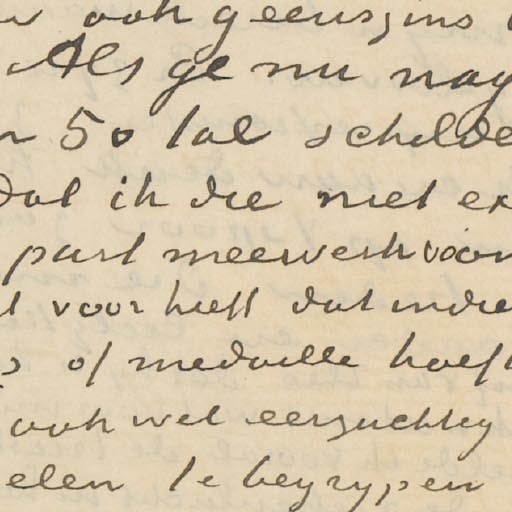 ook geenszins
Als ge nu nag
n 50 tal schilde
dat ik die niet ex
part meewerk voor
t voor heeft dat indie
of medaille heeft
ook wel eerzuchtig
elen te begrypen